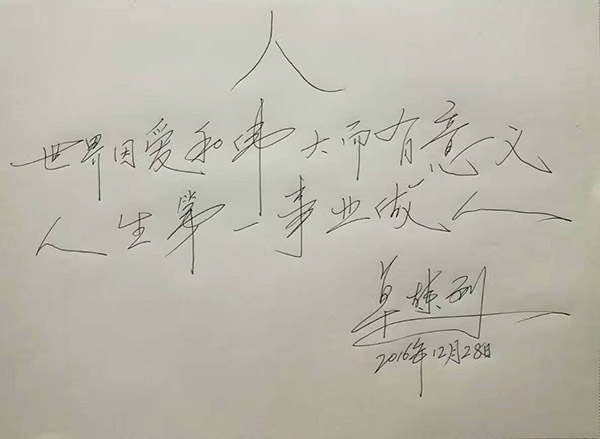 人
世界因爱和伟大而有意义
人生第一事业做人
2016年12月28日